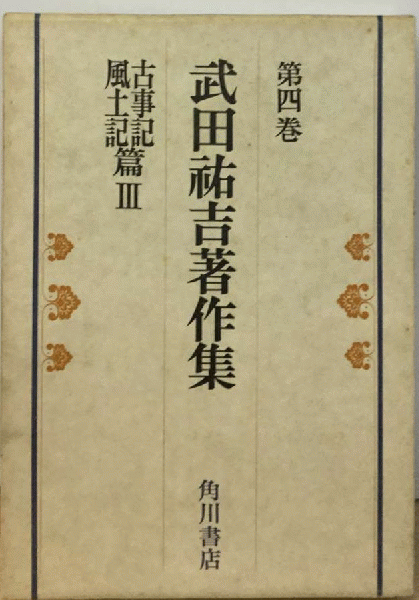 第四巻
武田祐吉著作集
古事記
風土記篇III
角川書店